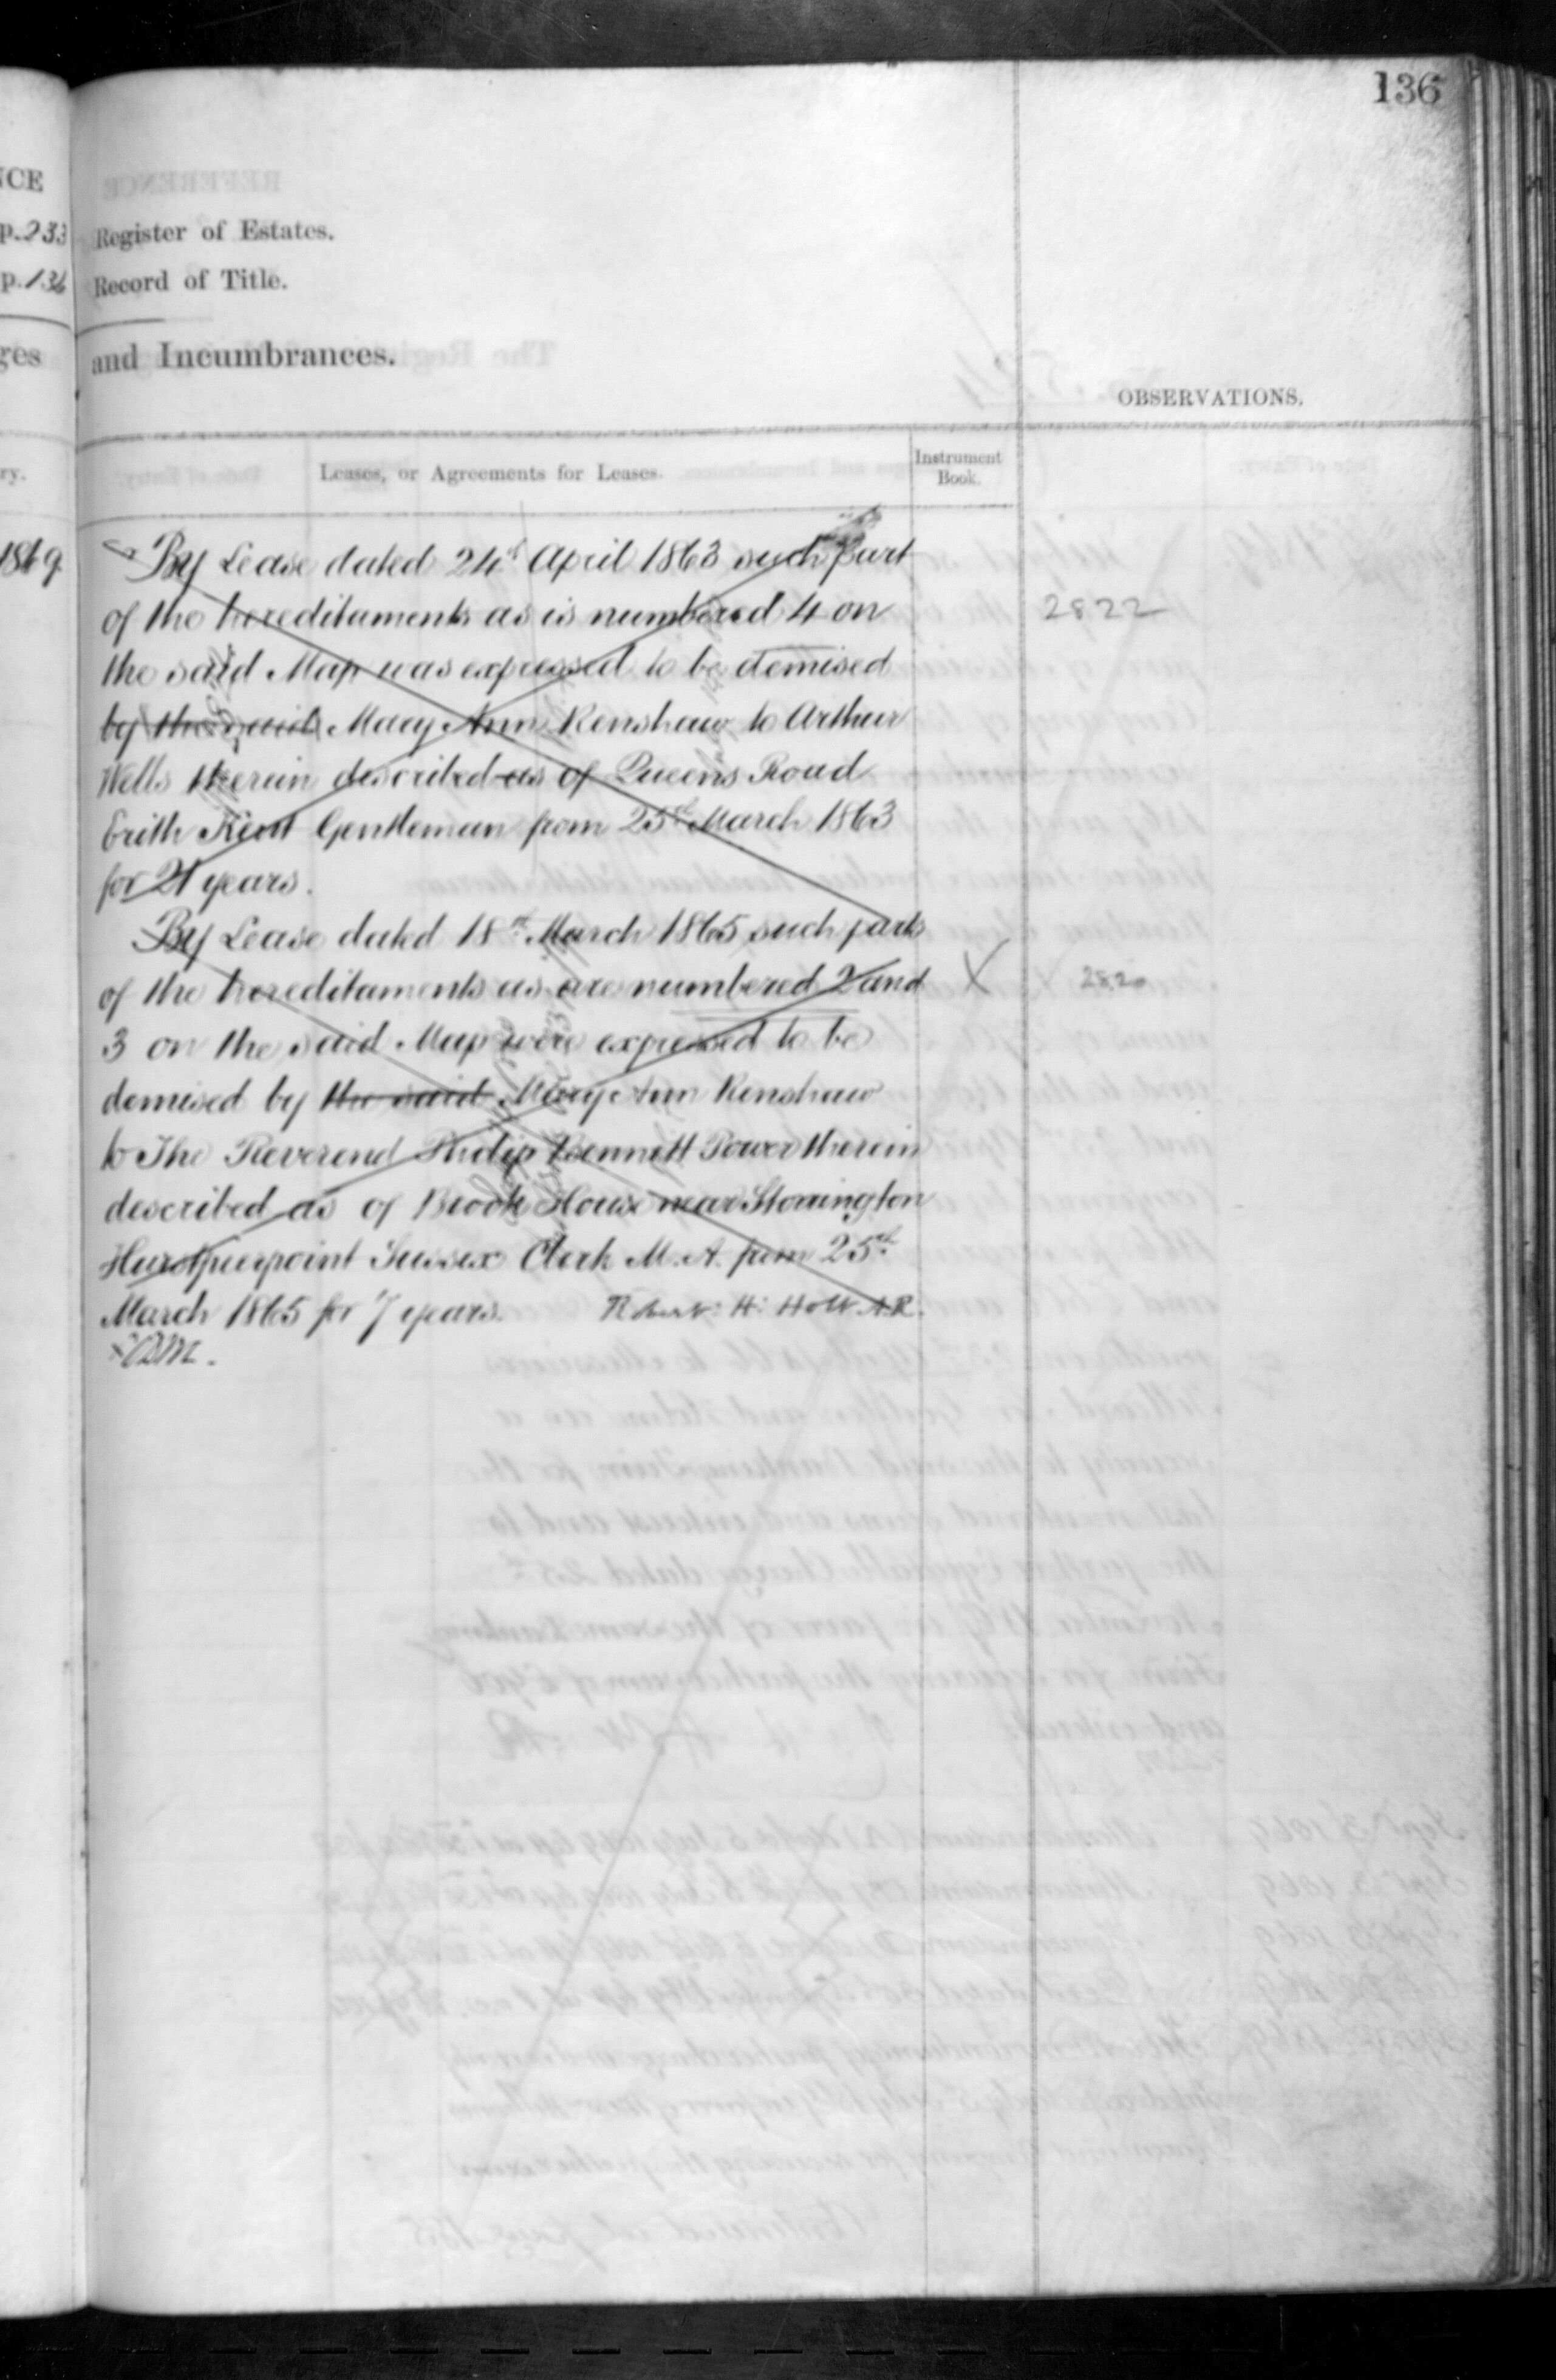 136
NCE
p.233 Register of Estates.
p.136 Record of Title.
ges and Incumbrances.
OBSERVATIONS.
ry. Leases, or Agreements for Leases. Instrument Book.
1869 By Lease dated 24th April 1863 such part
of the hereditaments as is numbered 4 on 2822
the said Map was expressed to be demised
by the said Mary Ann Renshaw to Arthur
Wells therein described as of Queens Road
Erith Kent Gentleman from 25th March 1863
for 21 years.
By Lease dated 18th March 1865 such parts
of the hereditaments as are numbered 2 and X 2820
3 on the said Map were expressed to be
demised by the said Mary Ann Renshaw
to The Reverend Philip Bennett Power therein
described as of Brook House near Storrington
Hurstpierpoint Sussex Clerk M.A. from 25th
March 1865 for 7 years. Robert H: Holt A.R.